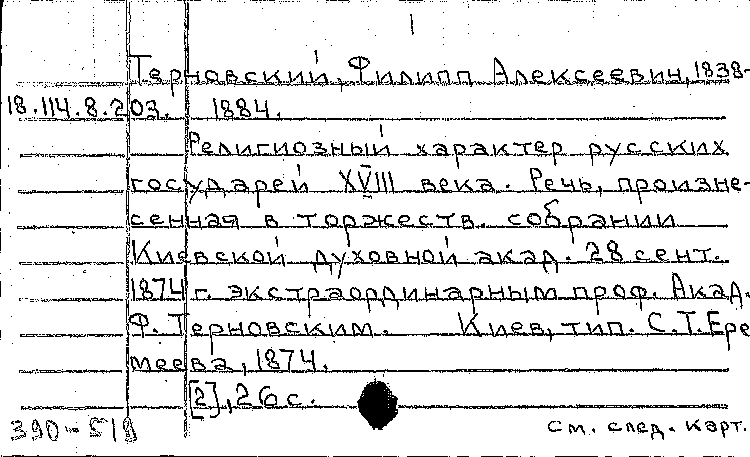 1
Терновский, Филипп Алексеевич, 1838-
18.114.8.203. 1884.
Религиозный характер русских
государей XVIII века. Речь, произне-
сенная в торжеств. собрании
Киевской духовной акад. 28 сент.
1874 г. экстраординарным проф. Акад.
Ф. Терновским. Киев, тип. С.Т.Ере
меева, 1874.
[2], 26 с.
390-518 см. след. карт.